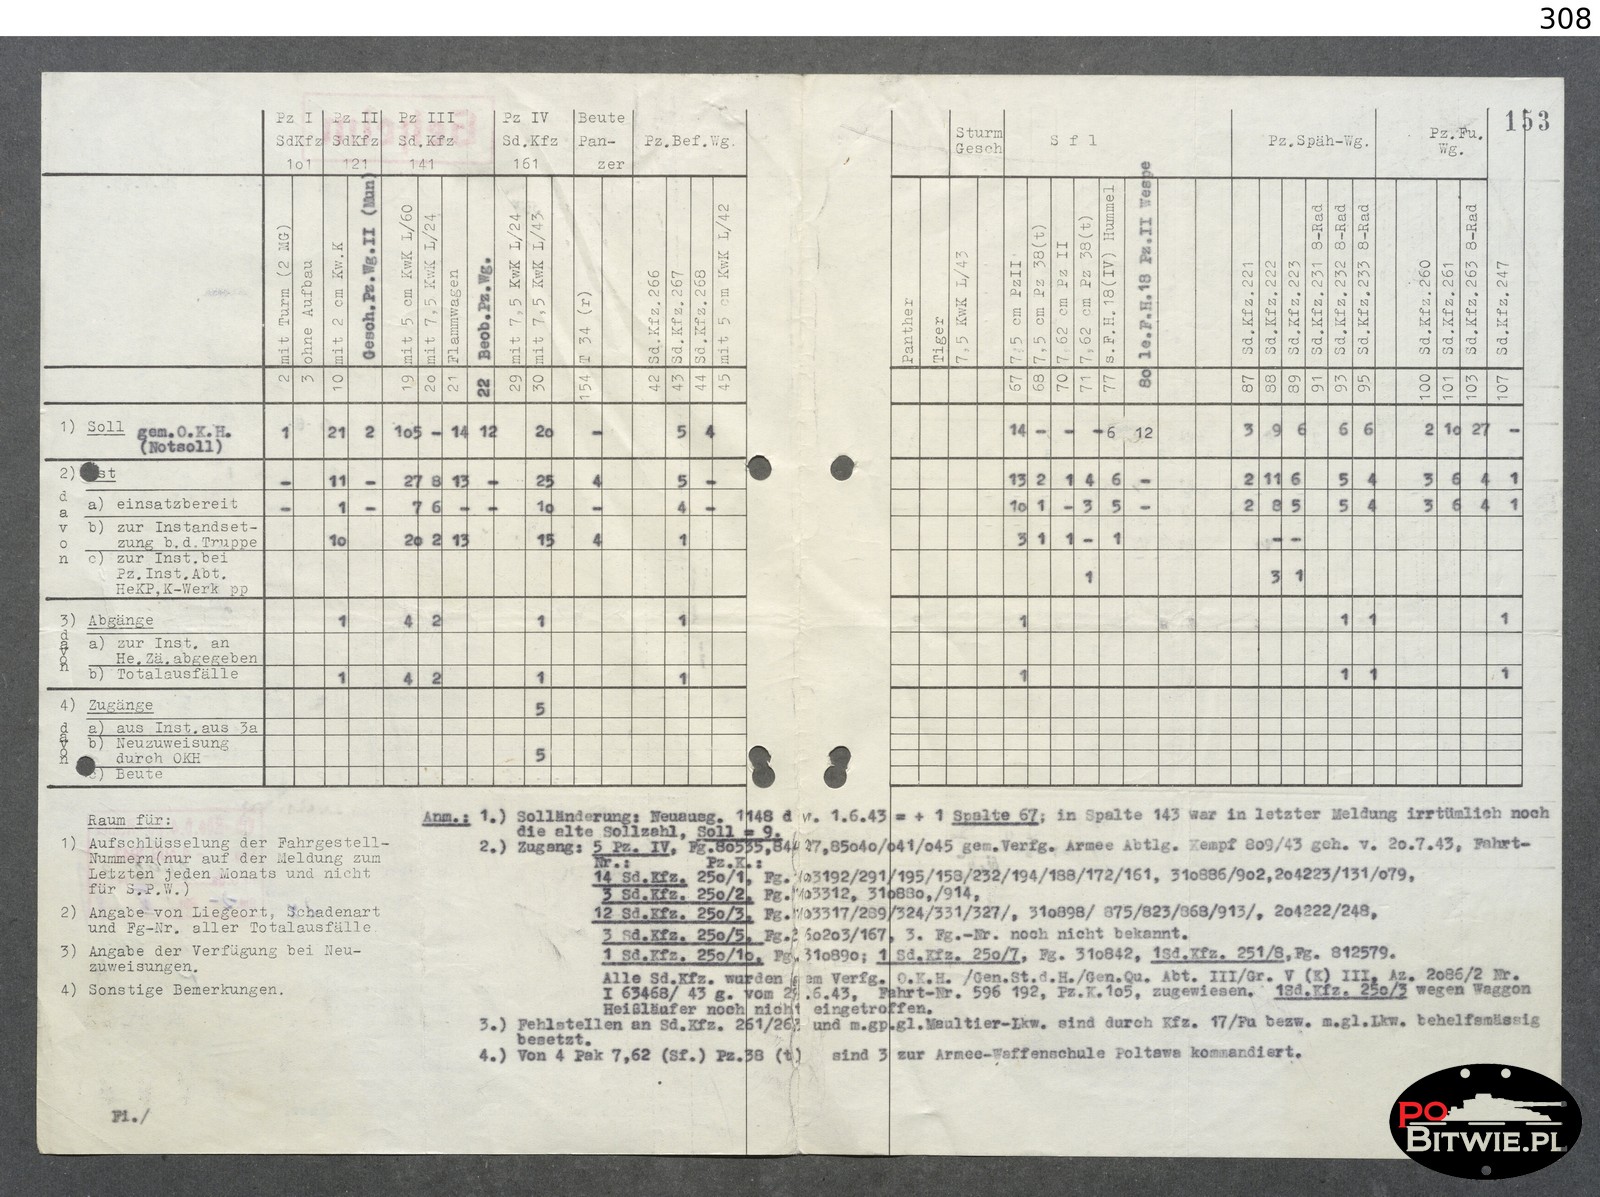 308
153
Pz I Pz II Pz III Pz IV Beute Sturm Gesch S f l Pz.Späh-Wg. Pz.Fu. Wg.
SdKfz SdKfz Sd.Kfz Sd.Kfz Pan- Pz.Bef.Wg.
1o1 121 141 161 zer
mit Turm (2 MG)
ohne Aufbau
mit 2 cm Kw.K
Gesch.Pz.Wg.II (Mun)
mit 5 cm KwK L/60
mit 7,5 KwK L/24
Flammwagen
Beob.Pz.Wg.
mit 7,5 KwK L/24
mit 7,5 KwK L/43
T 34 (r)
Sd.Kfz.266
Sd.Kfz.267
Sd.Kfz.268
mit 5 cm KwK L/42
Panther
Tiger
7,5 KwK L/43
7,5 cm PzII
7,5 cm Pz 38(t)
7,62 cm Pz II
7,62 cm Pz 38(t)
s.F.H.18(IV) Hummel
le.F.H.18 Pz.II Wespe
Sd.Kfz.221
Sd.Kfz.222
Sd.Kfz.223
Sd.Kfz.231 8-Rad
Sd.Kfz.232 8-Rad
Sd.Kfz.233 8-Rad
Sd.Kfz.260
Sd.Kfz.261
Sd.Kfz.263 8-Rad
Sd.Kfz.247
2 3 10 19 20 21 22 29 30 154 42 43 44 45 67 68 70 71 77 80 87 88 89 91 93 95 100 101 103 107
1) Soll gem.O.K.H. (Notsoll) 1 21 2 1o5 - 14 12 2o - 5 4 14 - - - 6 12 3 9 6 6 6 2 1o 27 -
2) st - 11 - 27 8 13 - 25 4 5 - 13 2 1 4 6 - 2 11 6 5 4 3 6 4 1
davon
a) einsatzbereit - 1 - 7 6 - - 1o - 4 - 1o 1 - 3 5 - 2 8 5 5 4 3 6 4 1
b) zur Instandset-
zung b.d.Truppe 1o 2o 2 13 15 4 1 3 1 1 - 1 - -
c) zur Inst.bei
Pz.Inst.Abt. 1 3 1
HeKP,K-Werk pp
3) Abgänge 1 4 2 1 1 1 1 1 1
davon
a) zur Inst. an
He.Zä.abgegeben
b) Totalausfälle 1 4 2 1 1 1 1 1 1
4) Zugänge 5
davon
a) aus Inst.aus 3a
b) Neuzuweisung
durch OKH 5
c) Beute
Raum für:
1) Aufschlüsselung der Fahrgestell-
Nummern(nur auf der Meldung zum
Letzten jeden Monats und nicht
für S.P.W.)
2) Angabe von Liegeort, Schadenart
und Fg-Nr. aller Totalausfälle
3) Angabe der Verfügung bei Neu-
zuweisungen.
4) Sonstige Bemerkungen.
Anm.: 1.) Solländerung: Neuausg. 1148 d v. 1.6.43 = + 1 Spalte 67; in Spalte 143 war in letzter Meldung irrtümlich noch
die alte Sollzahl, Soll = 9.
2.) Zugang: 5 Pz. IV, Fg.80535, 27,85o4o/o41/o45 gem.Verfg. Armee Abtlg. Kempf 8o9/43 geh. v. 2o.7.43, Fahrt-
Nr.: Pz.K.:
14 Sd.Kfz. 25o/1, Fg. 3192/291/195/158/232/194/188/172/161, 31o886/9o2,2o4223/131/o79,
3 Sd.Kfz. 25o/2, Fg. 3312, 31o88o,/914,
12 Sd.Kfz. 25o/3, Fg. 3317/289/324/331/327/, 31o898/ 875/823/868/913/, 2o4222/248,
3 Sd.Kfz. 25o/5, Fg. 6o2o3/167, 3. Fg.-Nr. noch nicht bekannt.
1 Sd.Kfz. 25o/1o, Fg. 31o89o; 1 Sd.Kfz. 25o/7, Fg. 31o842, 1Sd.Kfz. 251/8,Fg. 812579.
Alle Sd.Kfz. wurden gem Verfg. O.K.H. /Gen.St.d.H./Gen.Qu. Abt. III/Gr. V (K) III, Az. 2o86/2 Nr.
I 63468/ 43 g. vom 2 .6.43, Fahrt-Nr. 596 192, Pz.K.1o5, zugewiesen. 1Sd.Kfz. 25o/3 wegen Waggon
Heißläufer noch nicht eingetroffen.
3.) Fehlstellen an Sd.Kfz. 261/263 und m.gp.gl.Maultier-Lkw. sind durch Kfz. 17/Fu bezw. m.gl.Lkw. behelfsmässig
besetzt.
4.) Von 4 Pak 7,62 (Sf.) Pz.38 (t) sind 3 zur Armee-Waffenschule Poltawa kommandiert.
F1./
PO
BITWIE.PL